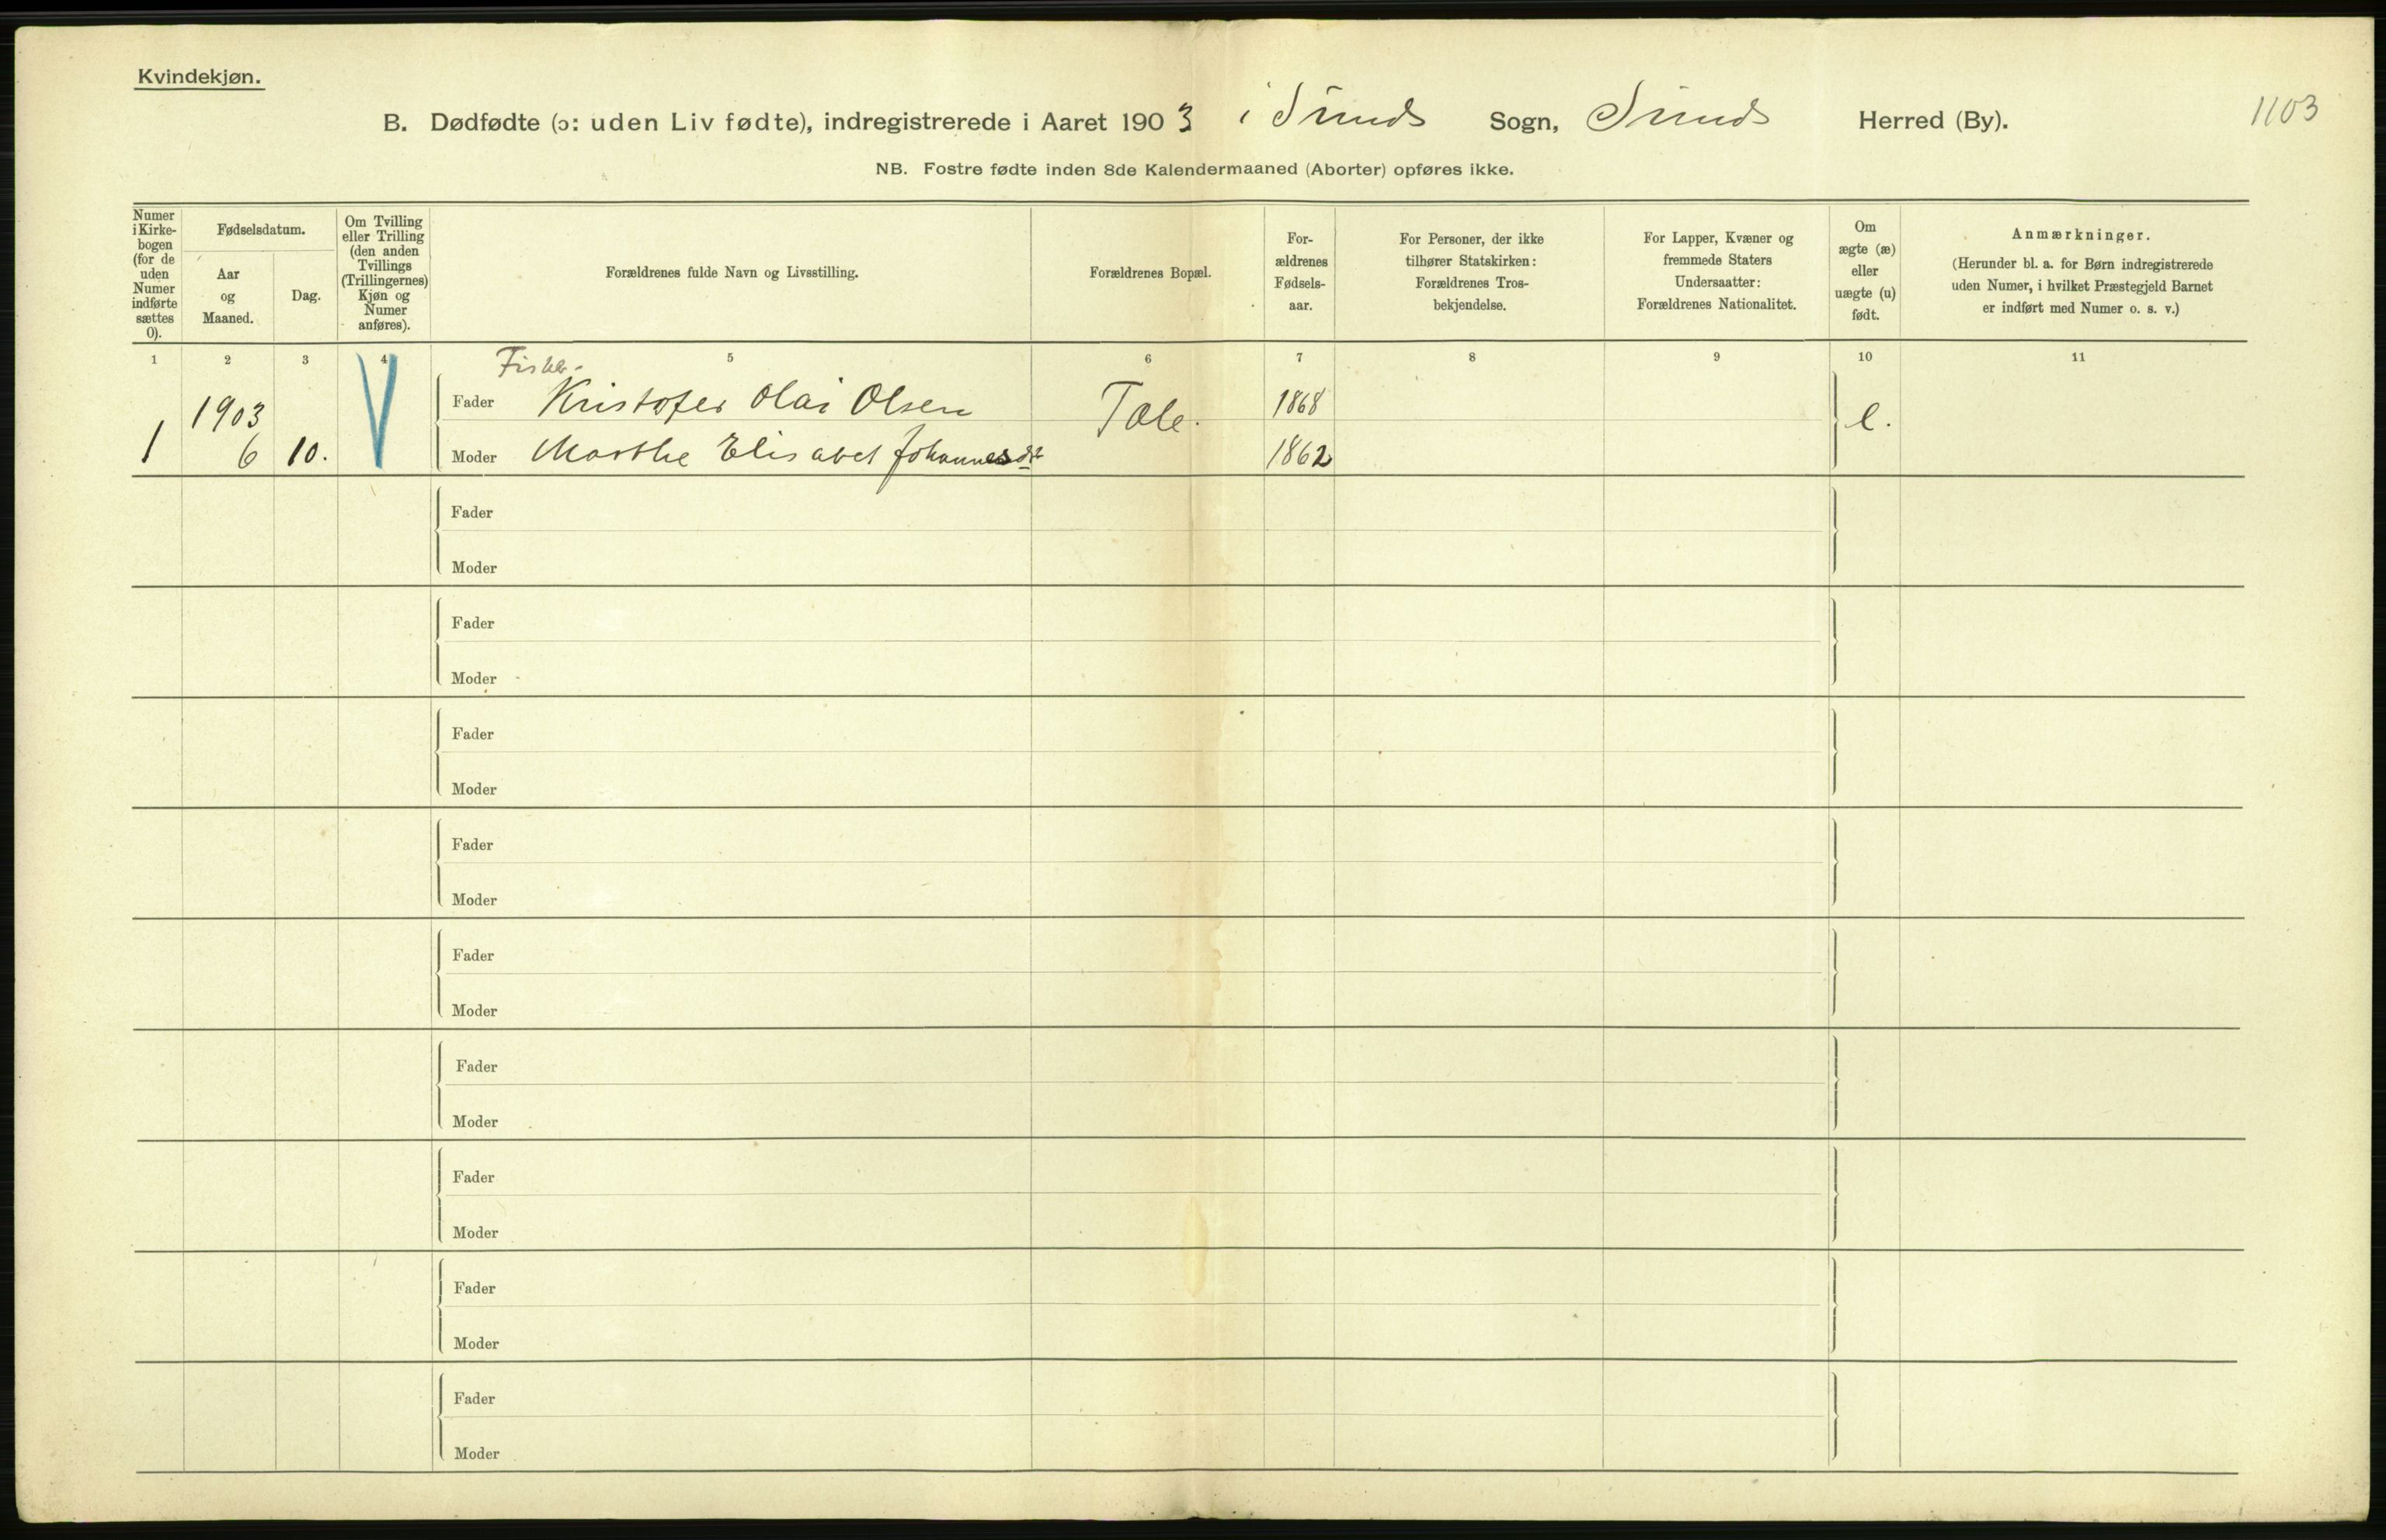 Kvindekjøn.
B. Dødfødte (ɔ: uden Liv fødte), indregistrerede i Aaret 1903 i Sunds Sogn, Sunds Herred (By). 1103
NB. Fostre fødte inden 8de Kalendermaaned (Aborter) opføres ikke.
Numer
i Kirke-
bogen
(for de
uden
Numer
indførte
sættes
0).
Fødselsdatum.
Aar
og
Maaned.
Dag.
Om Tvilling
eller Trilling
(den anden
Tvillings
(Trillingernes)
Kjøn og
Numer
anføres).
Forældrenes fulde Navn og Livsstilling.
Forældrenes Bopæl.
For-
ældrenes
Fødsels-
aar.
For Personer, der ikke
tilhører Statskirken:
Forældrenes Tros-
bekjendelse.
For Lapper, Kvæner og
fremmede Staters
Undersaatter:
Forældrenes Nationalitet.
Om
ægte (æ)
eller
uægte (u)
født.
Anmærkninger.
(Herunder bl. a. for Børn indregistrerede
uden Numer, i hvilket Præstegjeld Barnet
er indført med Numer o. s. v.)
1 2 3 4 5 6 7 8 9 10 11
Fisker.
1903 Fader Kristofer Olai Olsen Tæle. 1868 e.
1 6 10. Moder Marthe Elisabet Johannesdt 1862
Fader
Moder
Fader
Moder
Fader
Moder
Fader
Moder
Fader
Moder
Fader
Moder
Fader
Moder
Fader
Moder
Fader
Moder